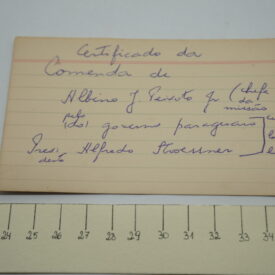 Certificado da
Comenda de
Albino J. Peixoto Jr (chefe
da
missão
pelo
(do) governo paraguaio
Presi Alfredo Stroessner
dente
24 25 26 27 28 29 30 31 32 33 34